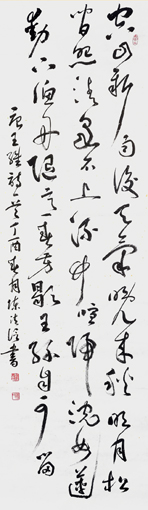 空山新雨後天氣晚來秋明月松
間照清泉石上流竹喧歸浣女蓮
動下漁舟隨意春芳歇王孫自可留
唐王維詩一首丁酉春月書